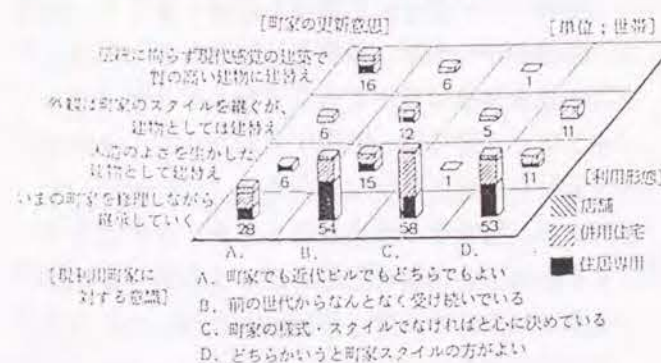 [町家の更新意思]
[単位；世帯]
に拘らず現代感覚の建築で
質の高い建物に建替え
外観は町家のスタイルを継ぐが、
建物としては建替え
木造のよさを生かした
建物として建替え
いまの町家を修理しながら
継承していく
16 6 1
6 12 5 11
6 15 1 11
28 54 58 53
A. B. C. D.
[利用形態]
店舗
併用住宅
住居専用
[現利用町家に
対する意識]
A. 町家でも近代ビルでもどちらでもよい
B. 前の世代からなんとなく受け続いでいる
C. 町家の様式・スタイルでなければと心に決めている
D. どちらかいうと町家スタイルの方がよい